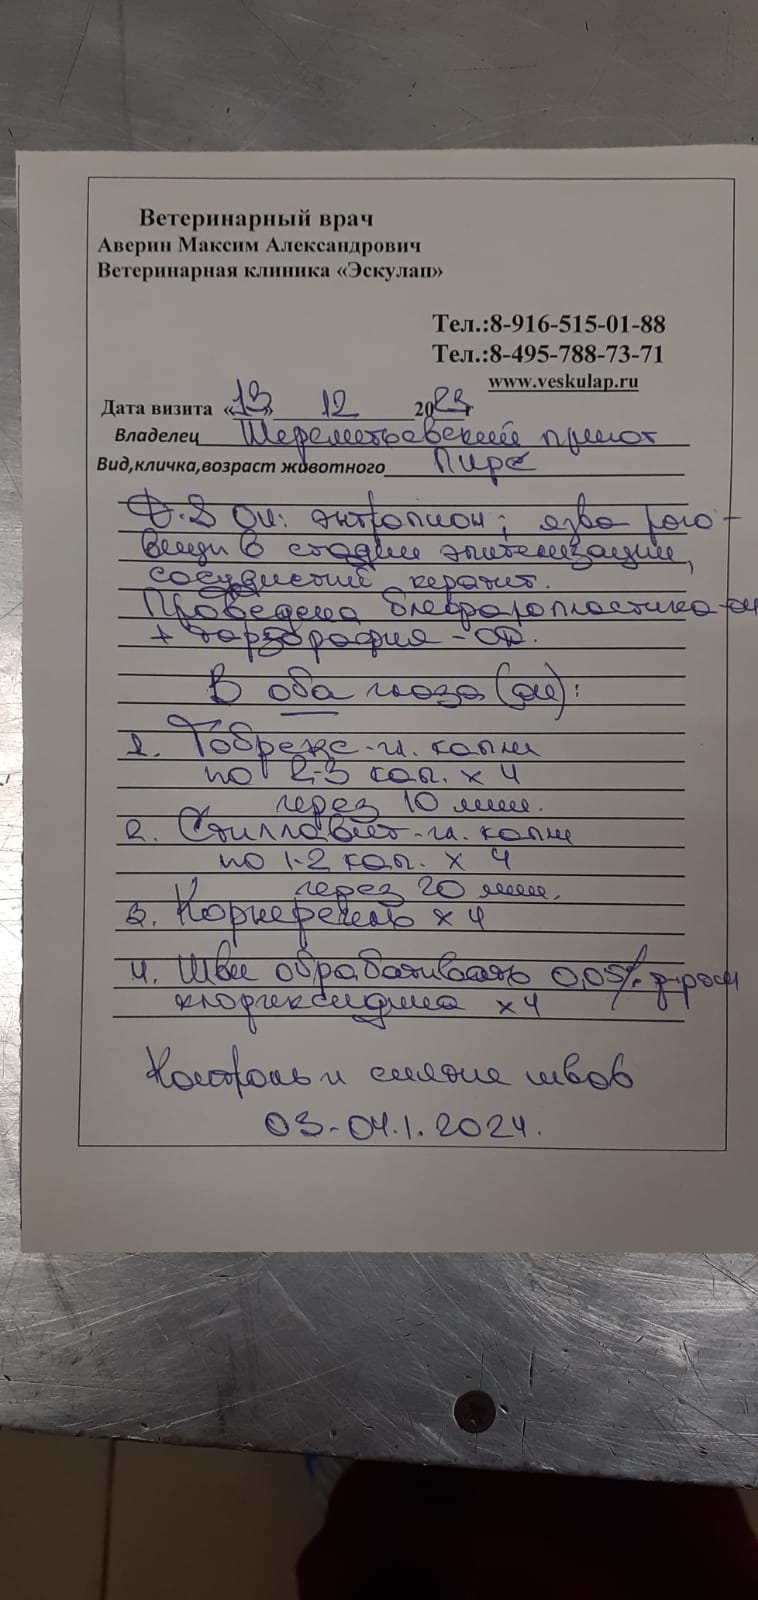 Ветеринарный врач
Аверин Максим Александрович
Ветеринарная клиника «Эскулап»
Тел.:8-916-515-01-88
Тел.:8-495-788-73-71
www.veskulap.ru
Дата визита «13» 12 2023г
Владелец Шереметьевский приют
Вид,кличка,возраст животного Пирс
D.S ou: энтропион; язва рого-
вицы в стадии эпителизации,
сосудистый кератит.
Проведена блефаропластика-ou
+ тарзорафия - OD.
В оба глаза (ou):
1. Тобрекс-гл. капли
по 2-3 кап. х 4
через 10 мин.
2. Стиллавит-гл. капли
по 1-2 кап. х 4
через 20 мин.
3. Корнерегель х 4
4. Швы обрабатывать 0,05% р-ром
хлоргексидина х 4
Контроль и снятие швов
03-04.1.2024.